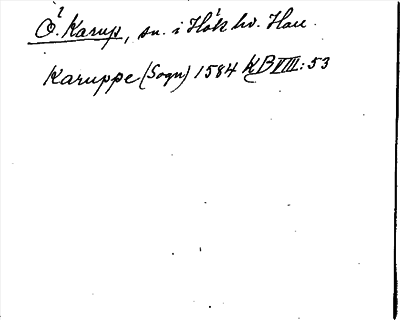 Ö. Karup, sn. i Hök hd. Hall.
Karuppe (Sogn) 1584 KB VIII: 53